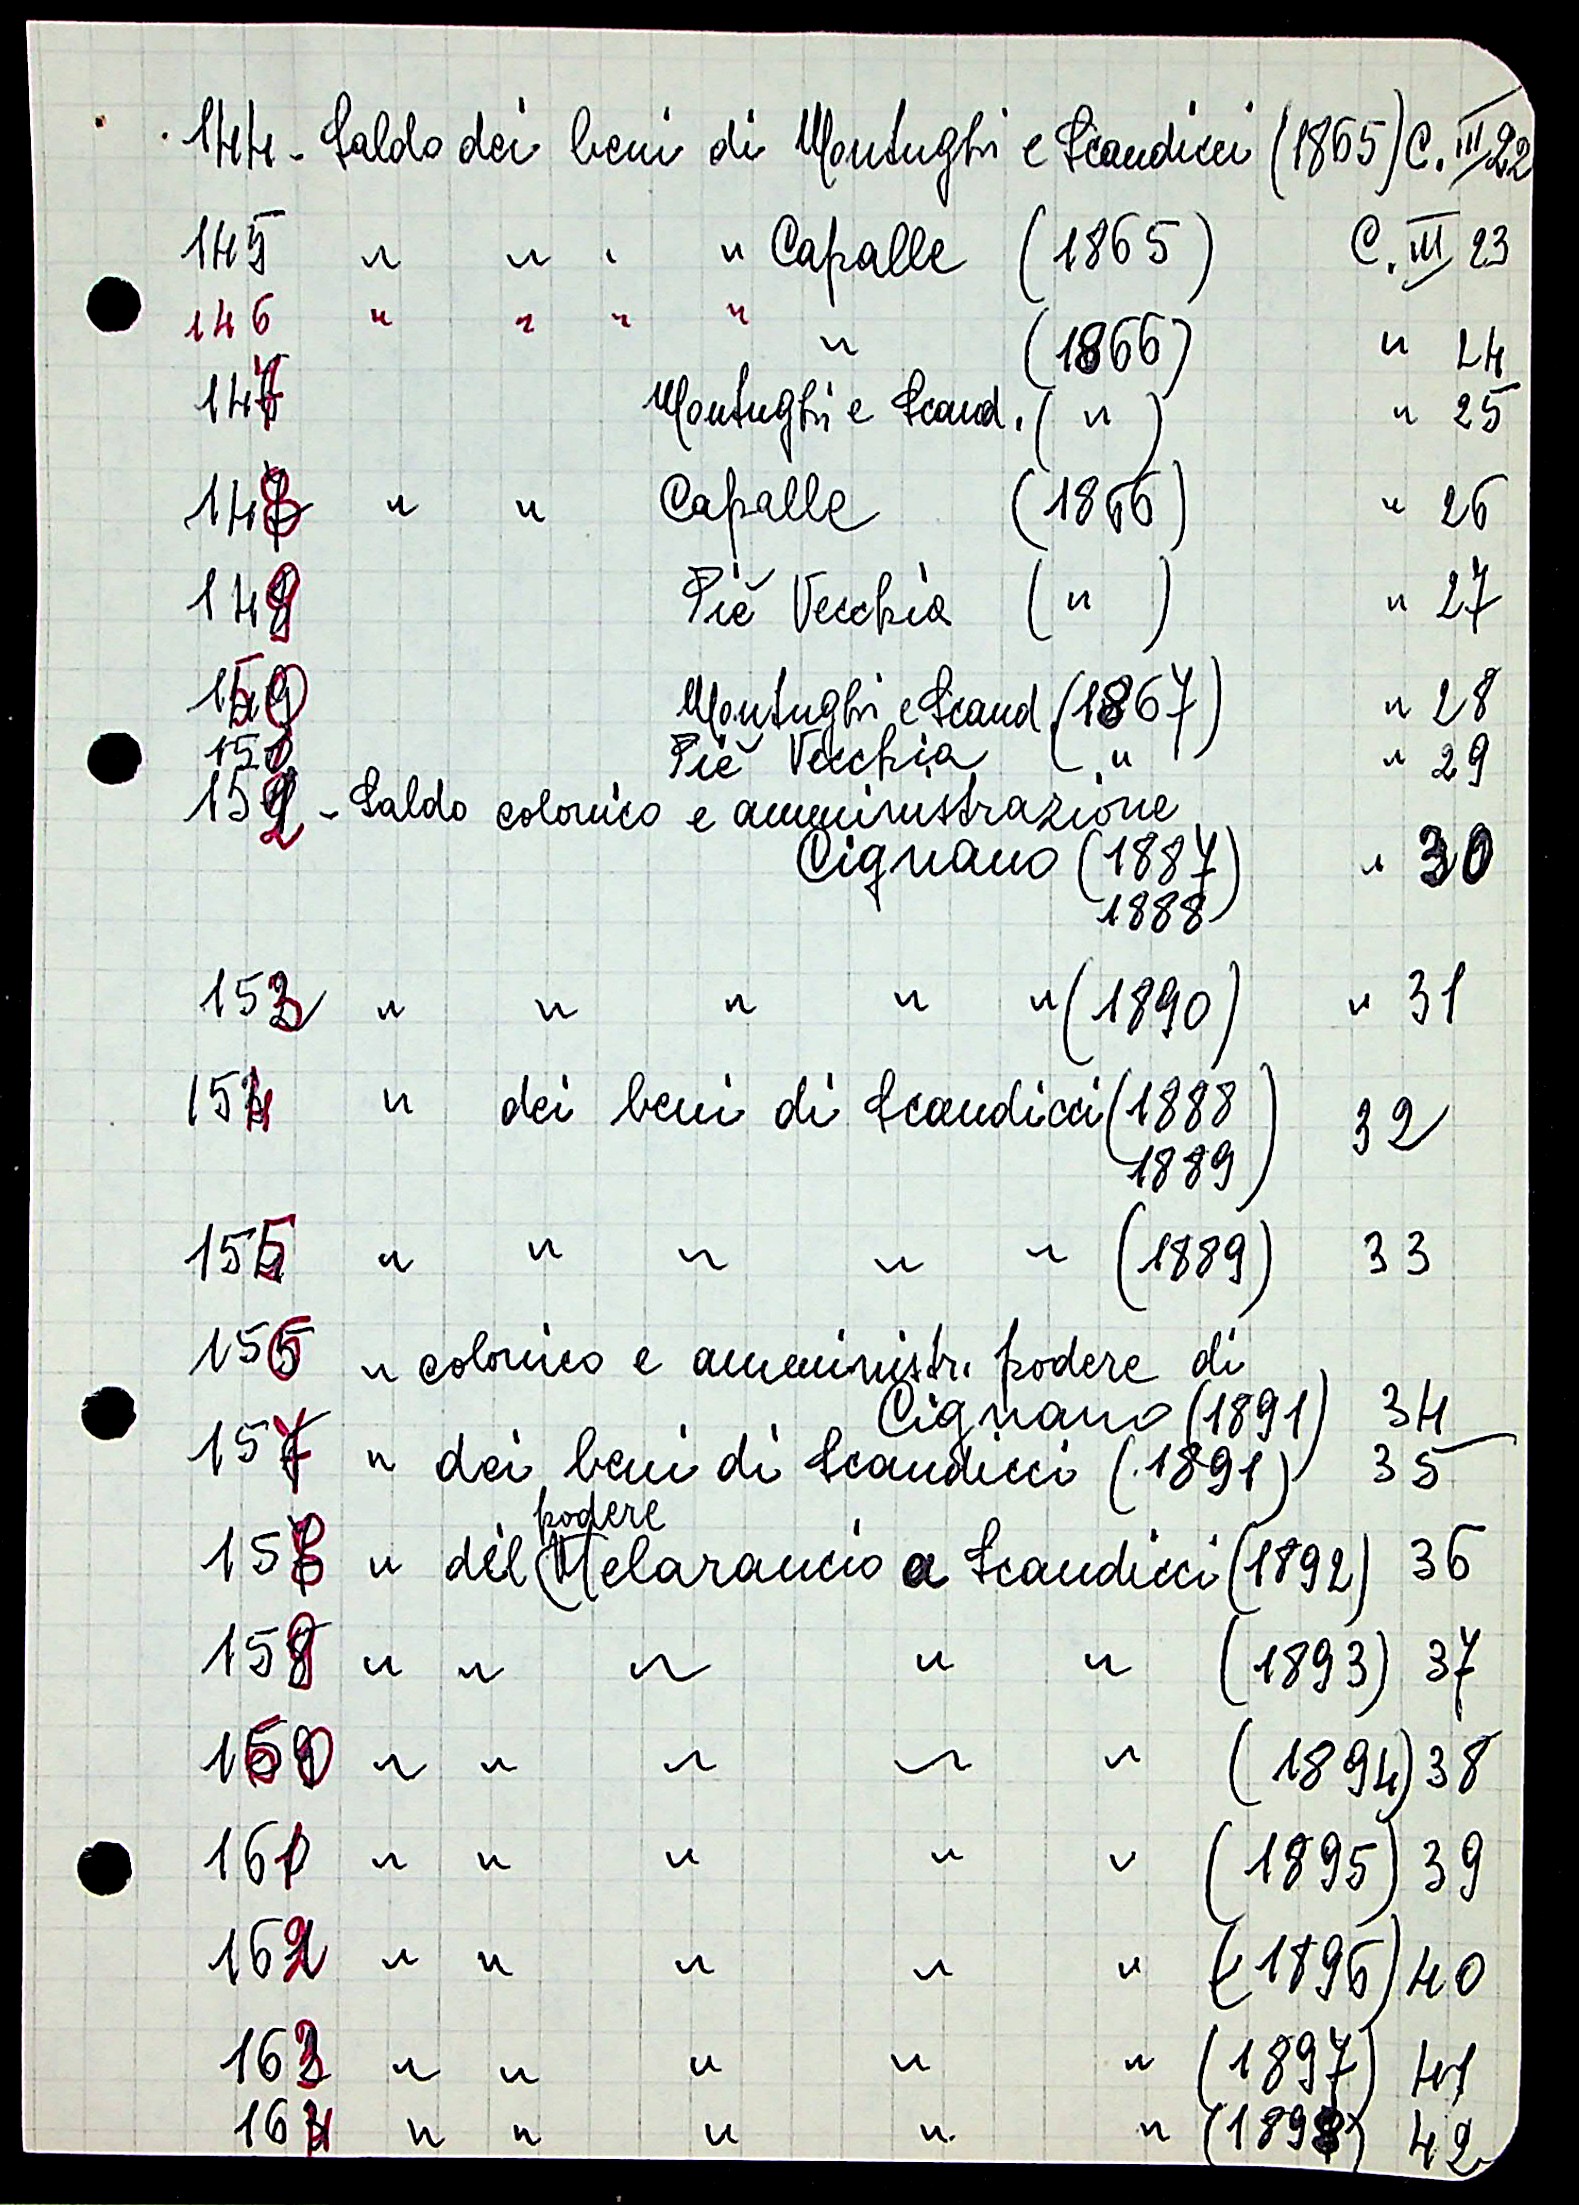 144 - Saldo dei beni di Montughi e Scandicci (1865) C. III 22
145 " " " " Capalle (1865) C. III 23
146 " " " " " (1866) " 24
147 Montughi e Scand. ( " ) " 25
148 " " Capalle (1866) " 26
149 Piè Vecchia ( " ) " 27
150 Montughi e Scand. (1867) " 28
151 Piè Vecchia ( " " 29
152 - Saldo colonico e amministrazione
Cignano (1887) " 30
1888)
153 " " " " " (1890) " 31
154 " dei beni di Scandicci (1888 32
1889)
155 " " " " " (1889) 33
156 " colonico e amministr. podere di
Cignano (1891) 34
157 " dei beni di Scandicci (1891) 35
podere
158 " del Melarancio a Scandicci (1892) 36
159 " " " " " (1893) 37
160 " " " " " (1894) 38
161 " " " " " (1895) 39
162 " " " " " (1896) 40
163 " " " " " (1897) 41
164 " " " " " (1898) 42